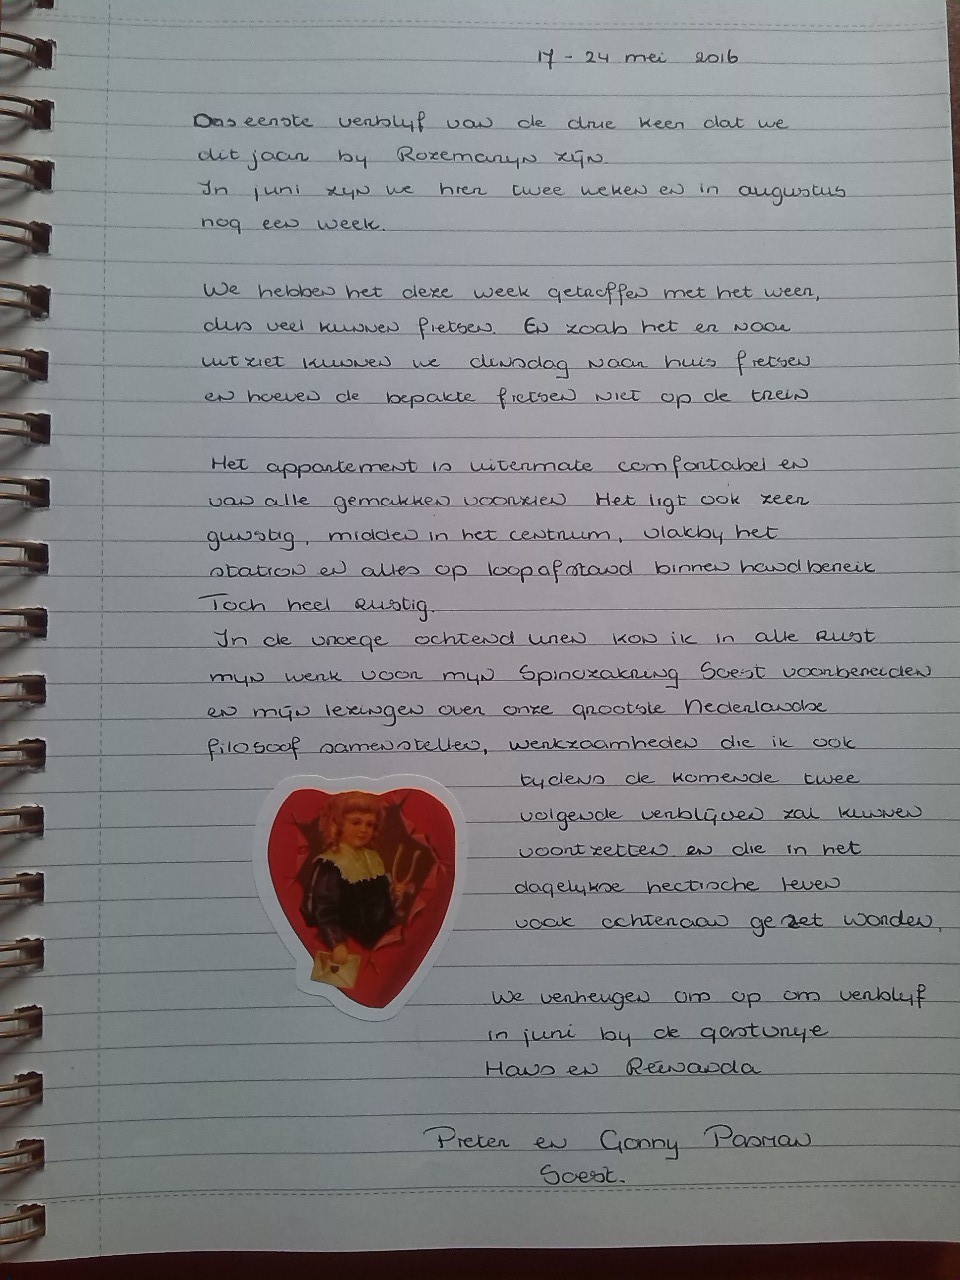 17 - 24 mei 2016
Ons eerste verblijf van de drie keer dat we
dit jaar by Rozemaryn zijn.
In juni zyn we hier twee weken en in augustus
nog een week.
We hebben het deze week getroffen met het weer,
dus veel kunnen fietsen. En zoals het er naar
uitziet kunnen we dinsdag naar huis fietsen
en hoeven de bepakte fietsen niet op de trein
Het appartement is uitermate comfortabel en
van alle gemakken voorzien Het ligt ook zeer
gunstig, midden in het centrum, vlakby het
station en alles op loopafstand binnen handbereik
Toch heel rustig.
In de vroege ochtend uren kon ik in alle rust
myn werk voor myn Spinozakring Soest voorbereiden
en mijn lezingen over onze grootste Nederlandse
filosoof samenstellen, werkzaamheden die ik ook
tydens de komende twee
volgende verblijven zal kunnen
voortzetten en die in het
dagelykse hectische leven
vaak achteraan gezet worden.
We verheugen ons op ons verblyf
in juni by de gastvrye
Hans en
Pieter en Gonny Pasman
Soest.